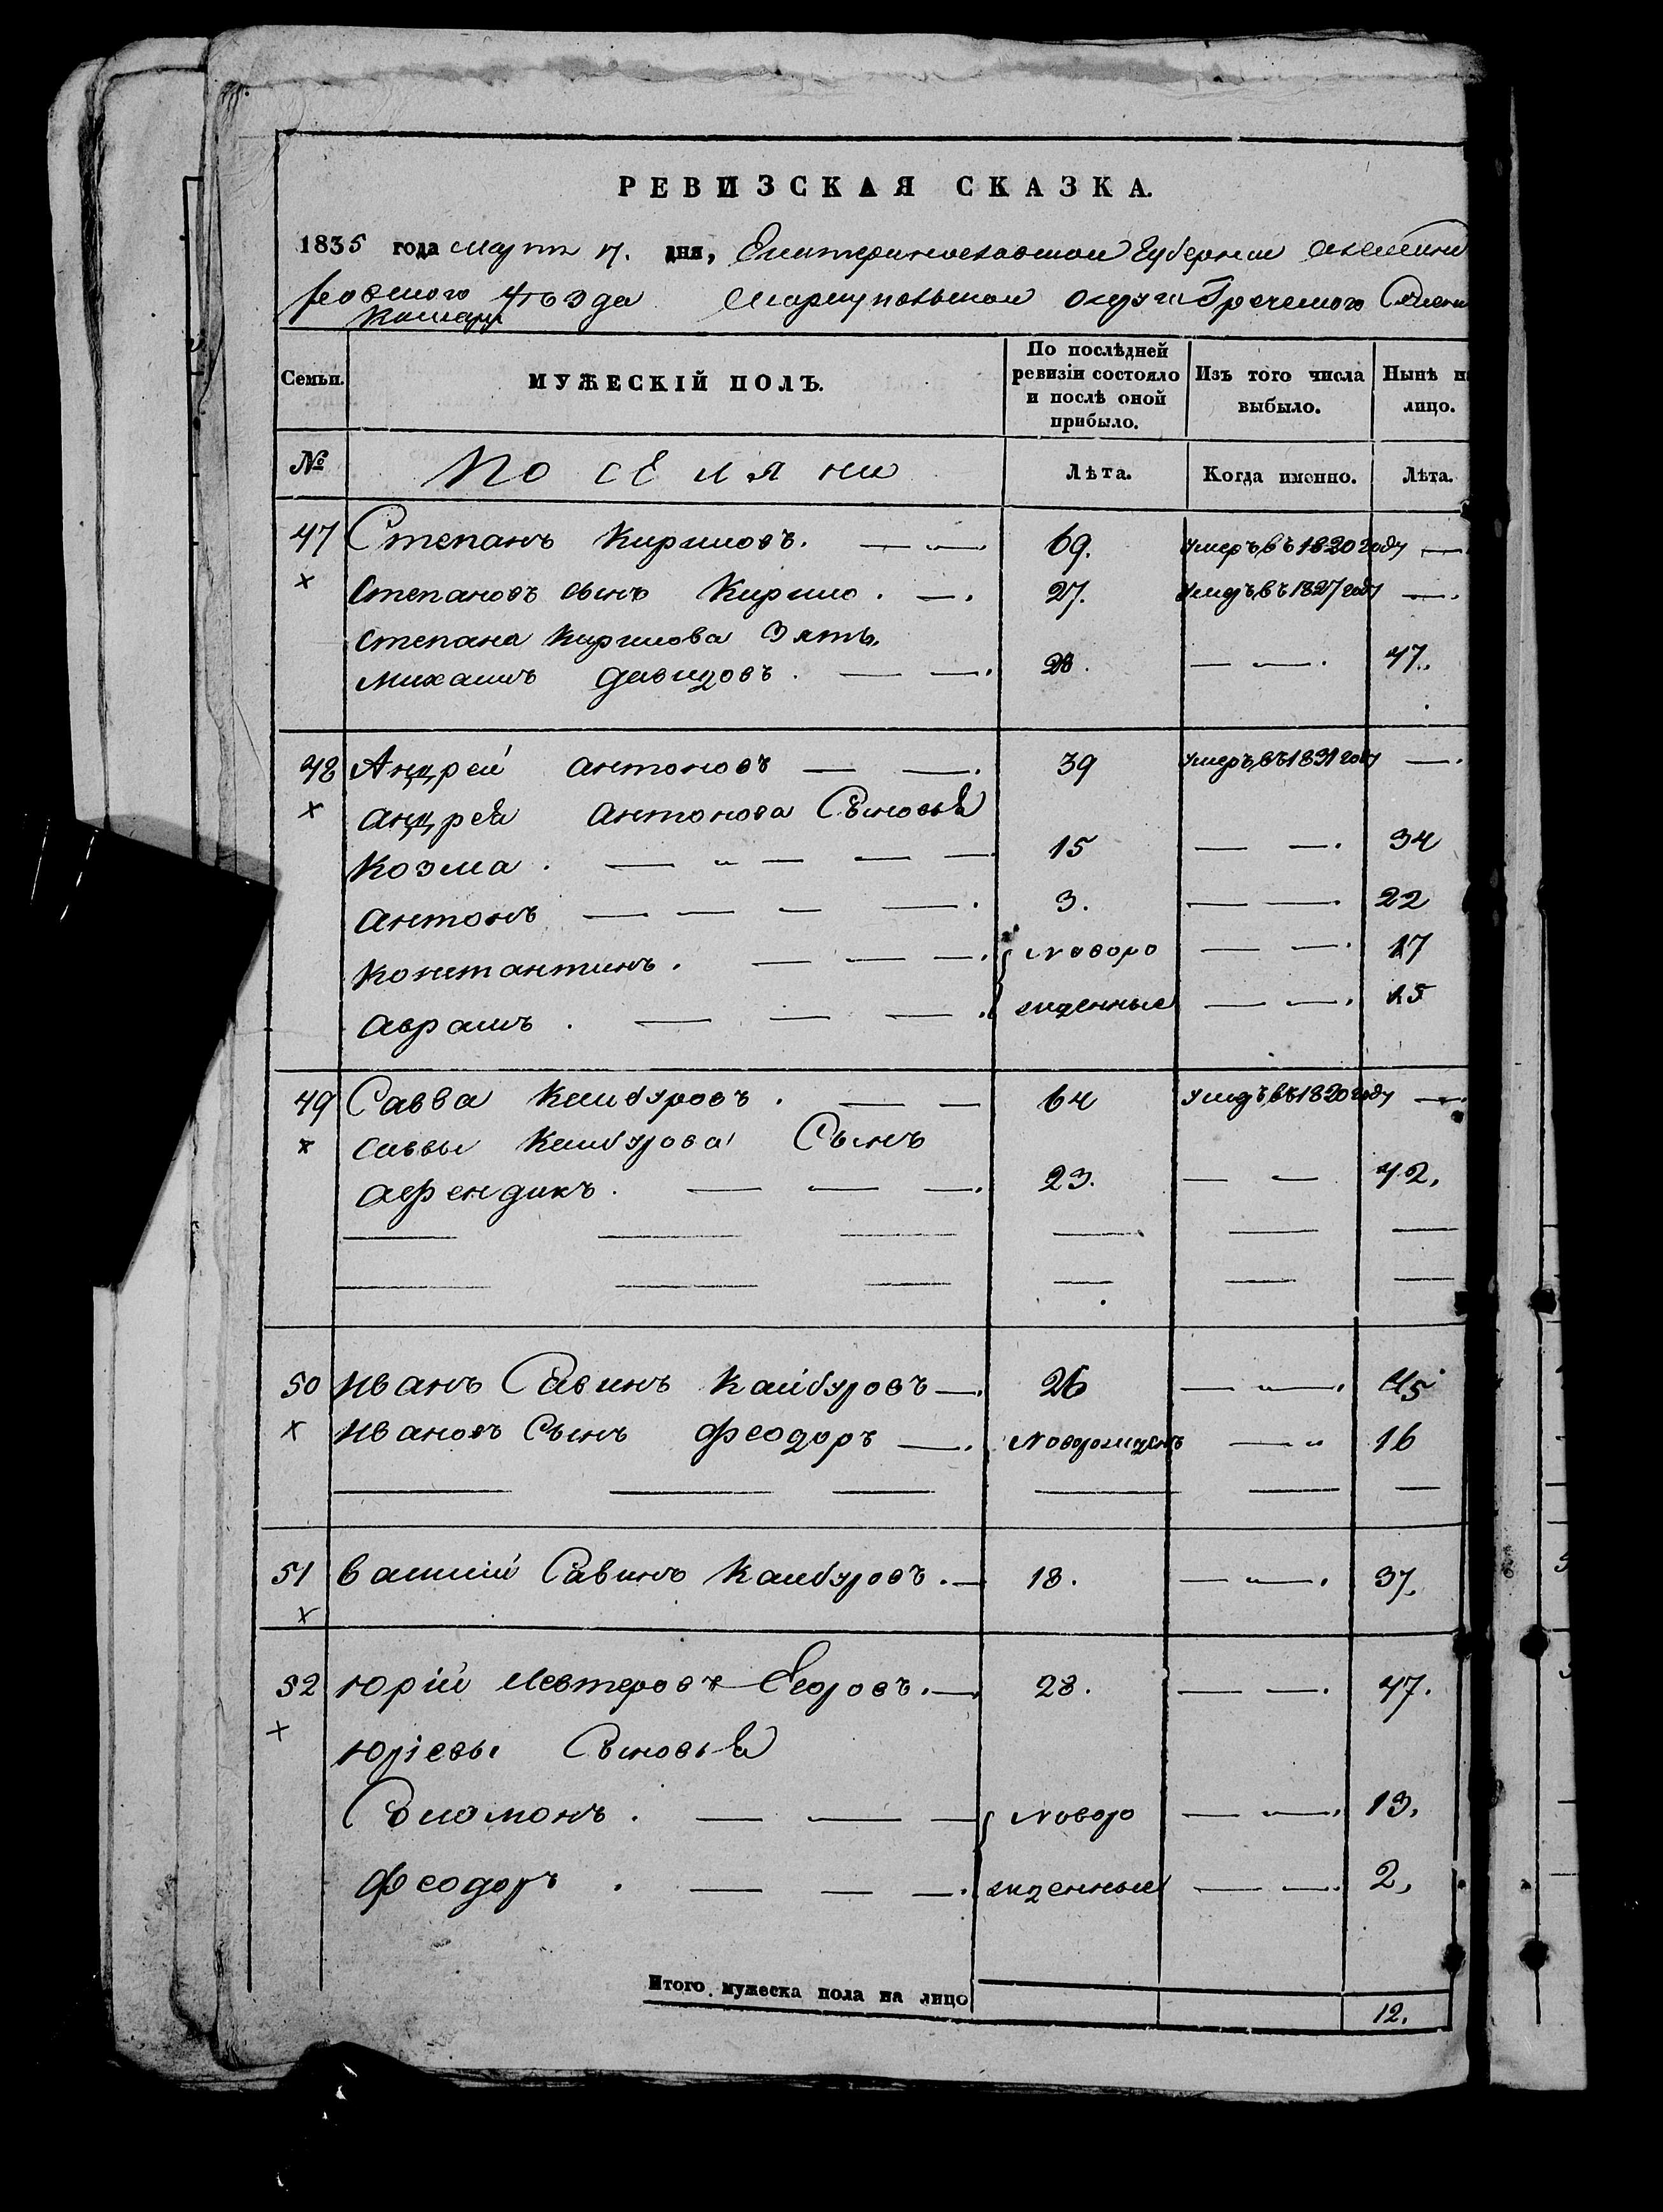 РЕВИЗСКАЯ СКАЗКА.
1835 года марта 17. дня, Екатеринославской Губернии Александ
ровского Уѣзда Мариупольскаго округа Греческого Селени
Камары
Семьи. МУЖЕСКІЙ ПОЛЪ. По послѣдней ревизіи состояло и послѣ оной прибыло. Изъ того числа выбыло. Нынѣ н лицо.
№ Поселяни Лѣта. Когда именно. Лѣта.
47 Степанъ Кириловъ. — — 69. умеръ въ 1820 году —
х Степановъ сынъ Кирило. — 27. умеръ въ 1827 году —
Степана Кирилова Зять
Михаилъ Давидовъ. — — 28. — — 47.
48 Андрей Антоновъ — — 39 умеръ въ 1831 году —
х Андрея Антонова Сыновья
Козма. — — — — 15 — — 34
Антонъ — — — — 3. — — 22
Константинъ. — — — Новоро — — 17
Аврамъ. — — — жденные — — 15
49 Савва Кайбуровъ. — — 64 умеръ въ 1820 году —
х Саввы Кайбурова Сынъ
Афендикъ. — — — 23. — — 42.
50 Иванъ Савинъ Кайбуровъ — 26 — — 45
х Ивановъ Сынъ Феодоръ — Новорожденъ — 16
51 Василій Савинъ Кайбуровъ. — 18. — — 37.
х
52 Юрій Левтеровъ Егоровъ. — 28. — — 47.
х Юріевы Сыновья
Соломонъ. — — — Новоро — — 13.
Феодоръ. — — — жденные — — 2.
Итого мужеска пола на лицо 12.